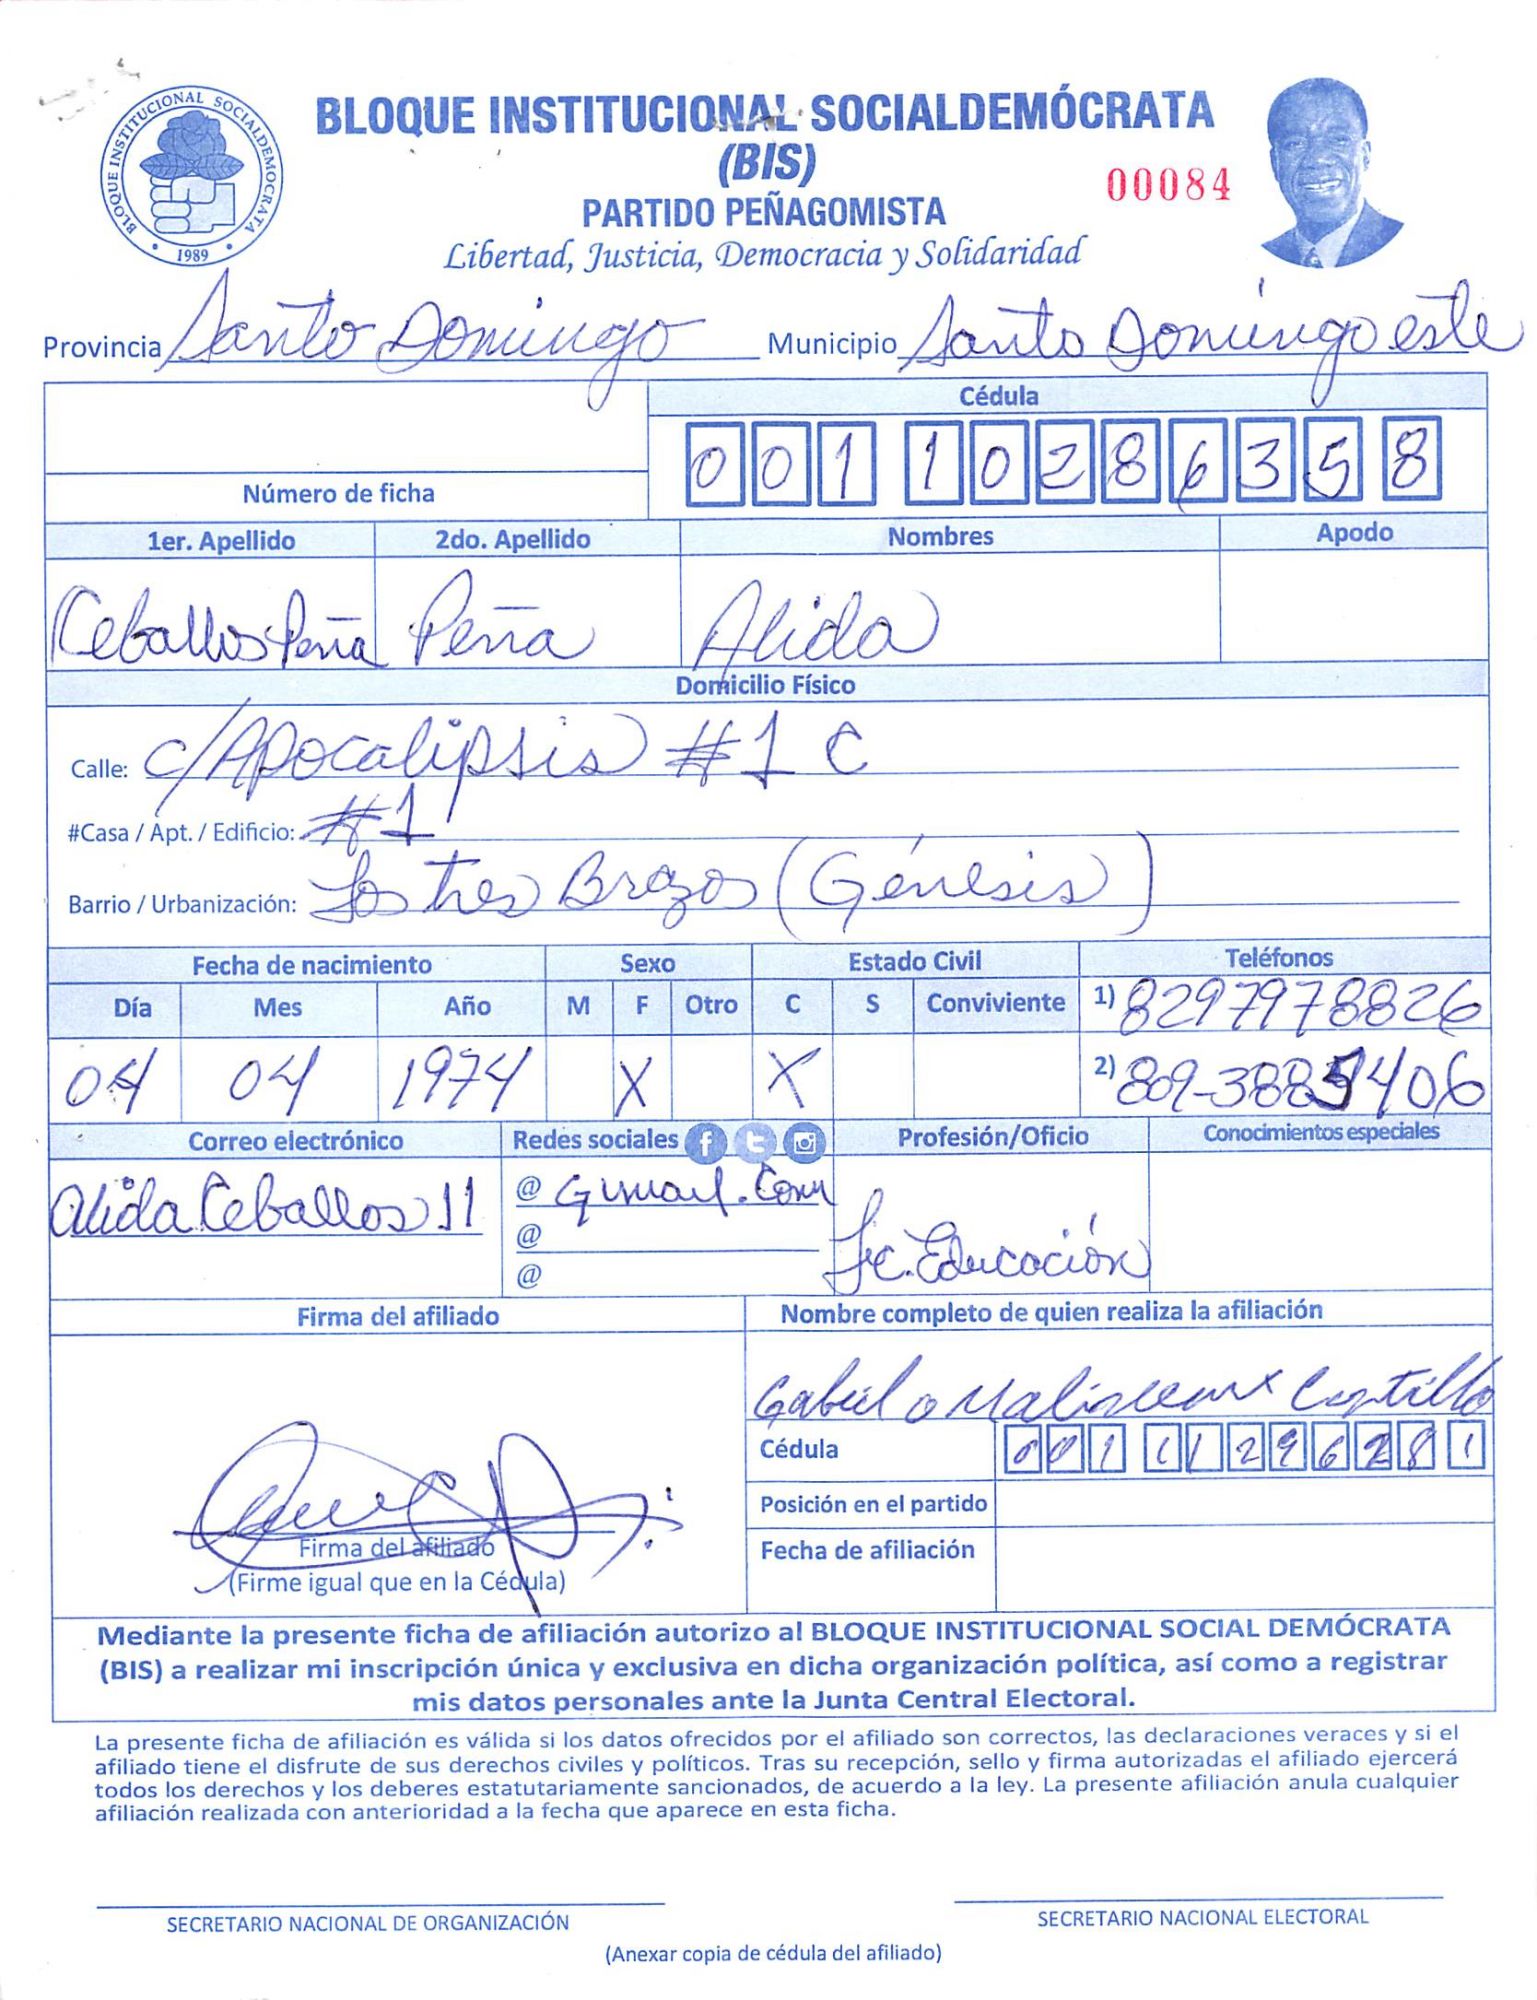 BLOQUE INSTITUCIONAL SOCIALDEMOCRATA
1989
BLOQUE INSTITUCIONAL SOCIALDEMÓCRATA
(BIS)
00084
PARTIDO PEÑAGOMISTA
Libertad, Justicia, Democracia y Solidaridad
Provincia Santo Domingo Municipio Santo Domingo este
Cédula
001 1028635 8
Número de ficha
1er. Apellido 2do. Apellido Nombres Apodo
Ceballos Peña Peña Alida
Domicilio Físico
Calle: c/Apocalipsis #1 C
#Casa / Apt. / Edificio: #1
Barrio / Urbanización: Los tres Brazos (Génesis)
Fecha de nacimiento Sexo Estado Civil Teléfonos
Día Mes Año M F Otro C S Conviviente 1) 8297978826
04 04 1974 X X 2) 809-3885406
Correo electrónico Redes sociales Profesión/Oficio Conocimientos especiales
Alida Ceballos 11 @ Gmail.Com
@ Lc. Educación
@
Firma del afiliado Nombre completo de quien realiza la afiliación
Castillo
Cédula 001 1129628 1
Posición en el partido
Firma del afiliado
Fecha de afiliación
(Firme igual que en la Cédula)
Mediante la presente ficha de afiliación autorizo al BLOQUE INSTITUCIONAL SOCIAL DEMÓCRATA
(BIS) a realizar mi inscripción única y exclusiva en dicha organización política, así como a registrar
mis datos personales ante la Junta Central Electoral.
La presente ficha de afiliación es válida si los datos ofrecidos por el afiliado son correctos, las declaraciones veraces y si el
afiliado tiene el disfrute de sus derechos civiles y políticos. Tras su recepción, sello y firma autorizadas el afiliado ejercerá
todos los derechos y los deberes estatutariamente sancionados, de acuerdo a la ley. La presente afiliación anula cualquier
afiliación realizada con anterioridad a la fecha que aparece en esta ficha.
SECRETARIO NACIONAL DE ORGANIZACIÓN SECRETARIO NACIONAL ELECTORAL
(Anexar copia de cédula del afiliado)